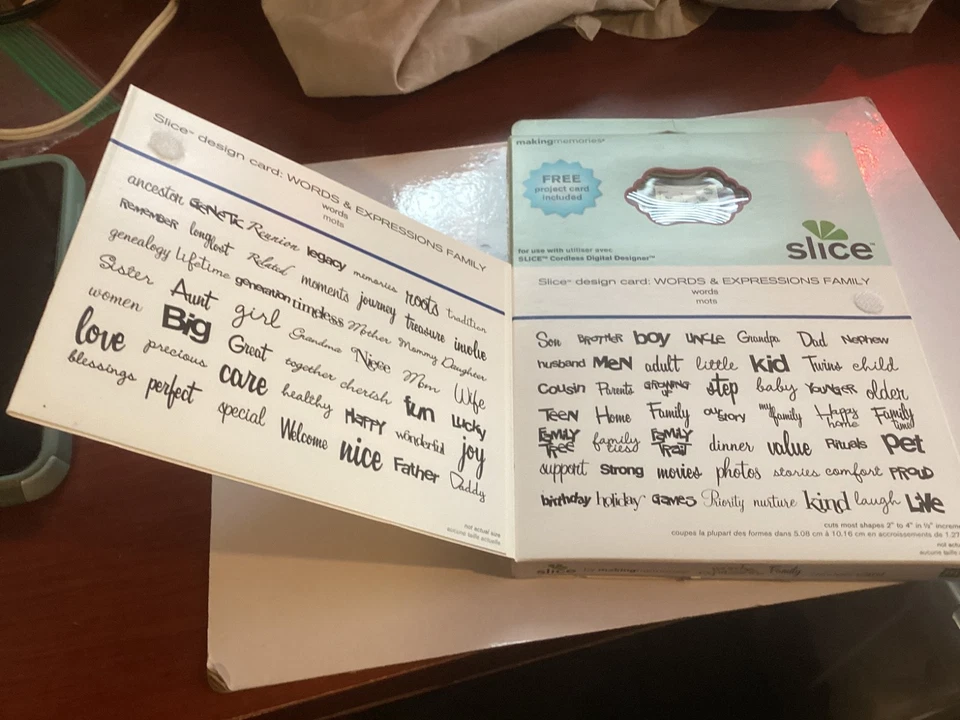 Slice™ design card: WORDS & EXPRESSIONS FAMILY
words
mots
ancestor GENETIC Reunion legacy memories roots tradition
REMEMBER longlost Related moments journey treasure involve
genealogy Lifetime generation timeless Mother Mommy Daughter
Sister Aunt girl Grandma Niece Mom Wife
women Big Great together cherish fun Lucky
love precious care healthy HAPPY wonderful joy
blessings perfect special Welcome nice Father Daddy
not actual size
aucune taille actuelle
makingmemories®
FREE
project card
included
slice™
for use with/utiliser avec
SLICE™ Cordless Digital Designer™
Slice™ design card: WORDS & EXPRESSIONS FAMILY
words
mots
Son BROTHER boy UNCLE Grandpa Dad Nephew
husband MEN adult little kid Twins child
Cousin Parents GROWING up step baby YOUNGER older
TEEN Home Family our STORY my family Happy home Family time
FAMILY TREE family ties FAMILY TRAIT dinner value Rituals Pet
support Strong movies photos stories comfort PROUD
birthday holiday GAMES Priority nurture kind laugh LIVE
cuts most shapes 2" to 4" in ½" increm
coupez la plupart des formes dans 5.08 cm à 10.16 cm en accroissements de 1.27
not actu
aucune taille
slice